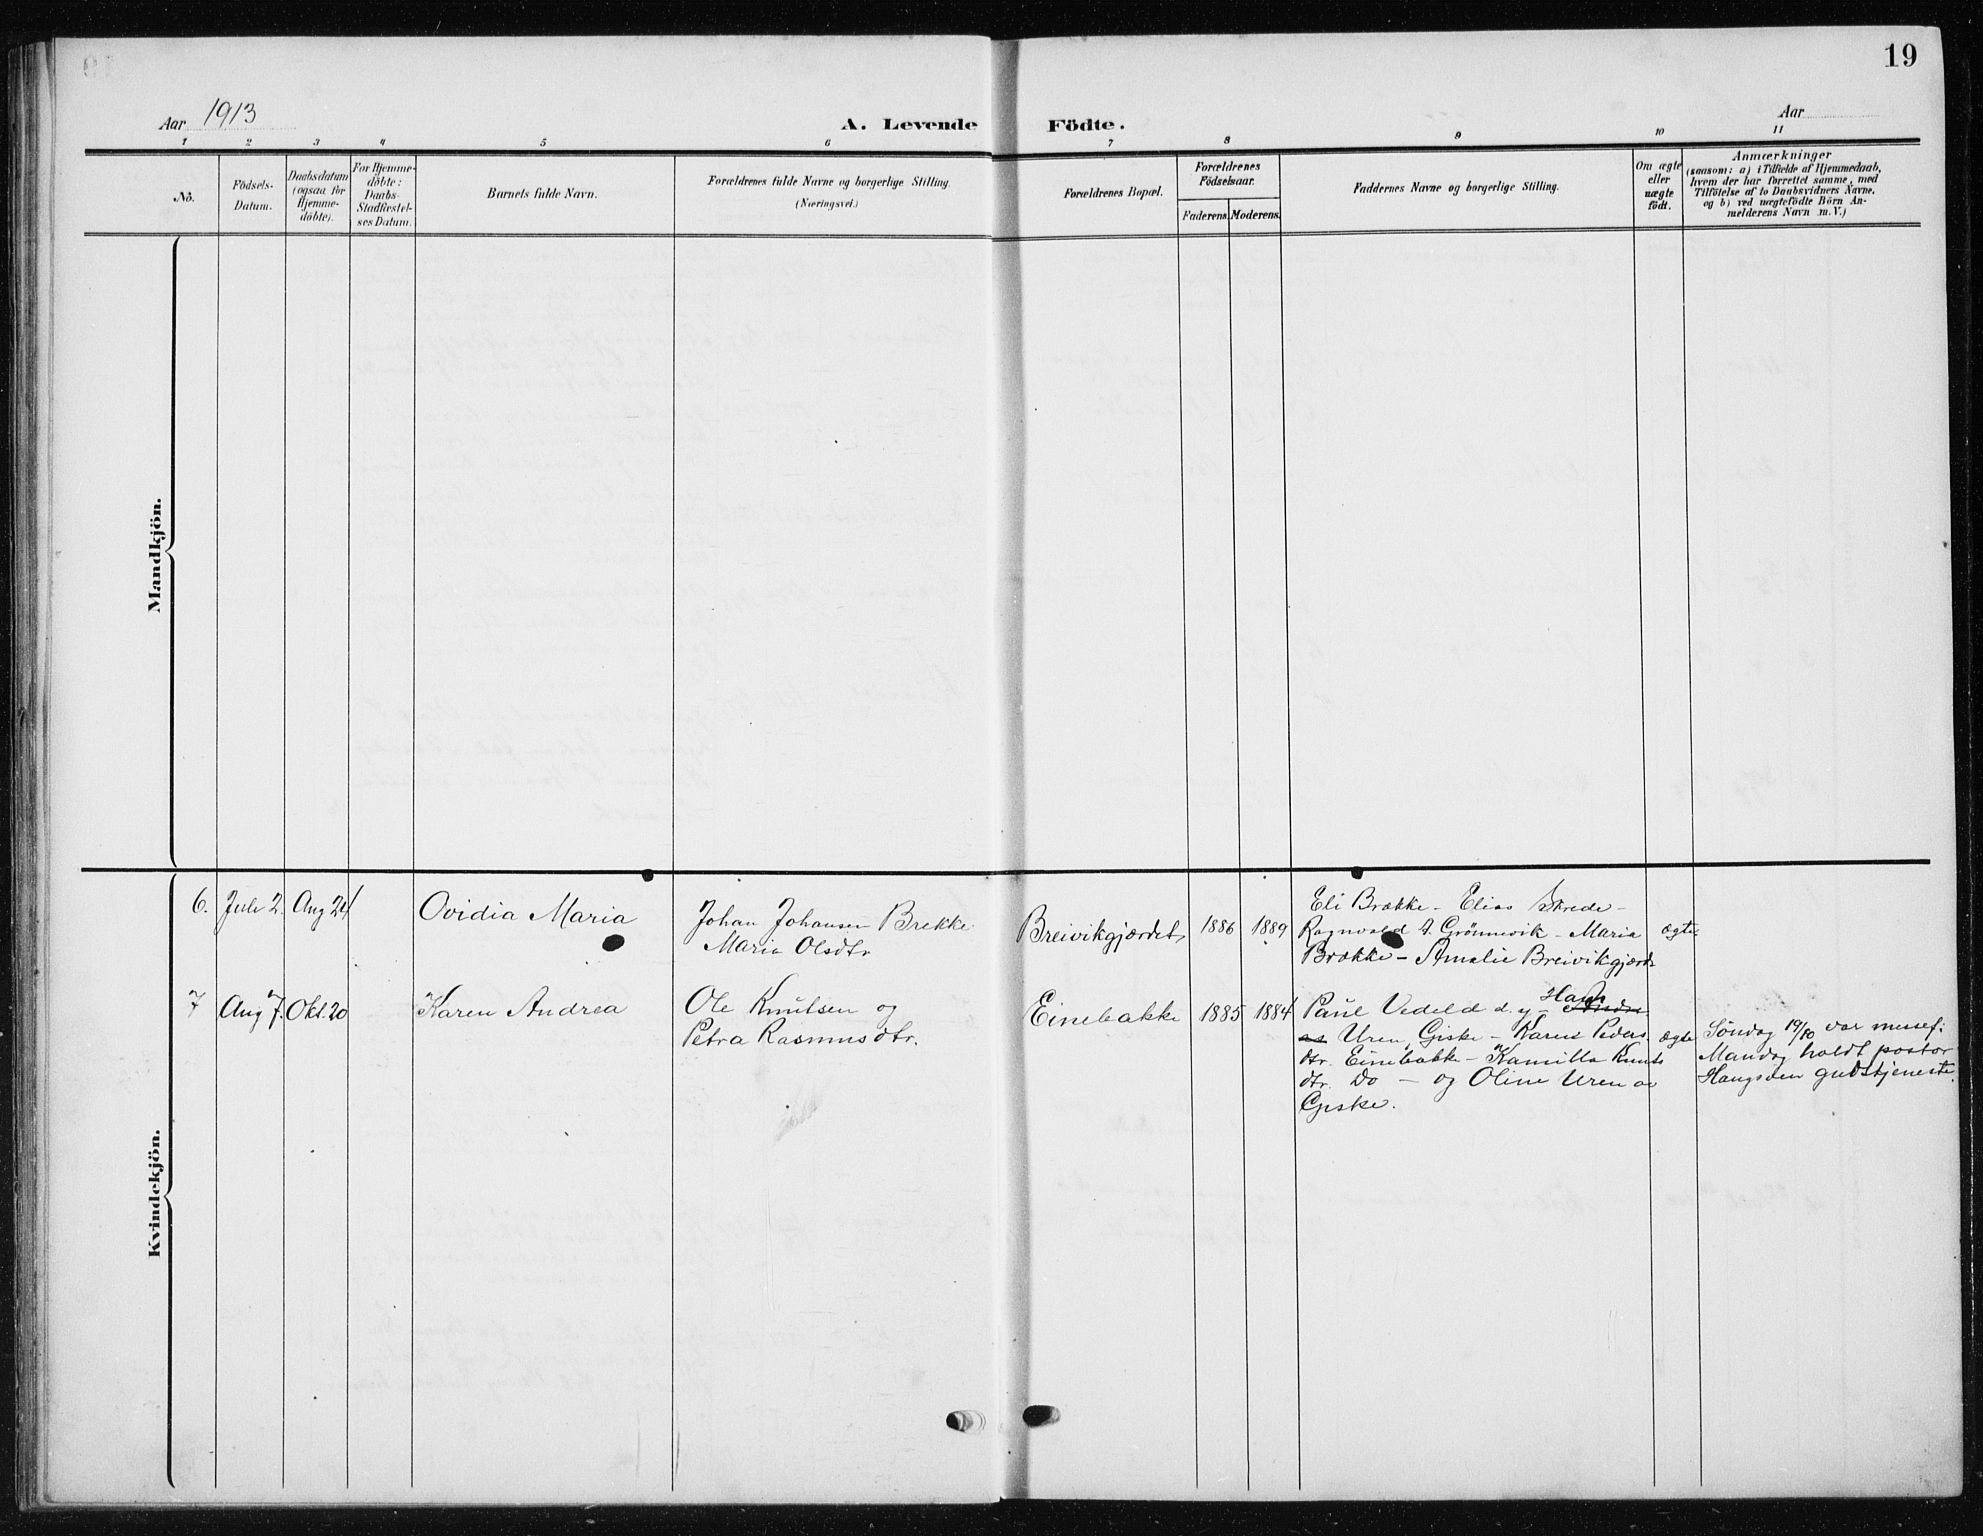 19
Aar 1913
A. Levende Födte.
Aar
1 2 3 4 5 6 7 8 9 10 11
No.
Födsels-
Datum.
Daabsdatum
(ogsaa for
Hjemme-
döbte).
For Hjemme-
döbte:
Daabs-
Stadfæstel-
ses Datum.
Barnets fulde Navn.
Forældrenes fulde Navne og borgerlige Stilling.
(Næringsvei.)
Forældrenes Bopæl.
Forældrenes
Födselsaar.
Faderens. Moderens.
Faddernes Navne og borgerlige Stilling.
Om ægte
eller
uægte
födt.
Anmærkninger
(saasom: a) i Tilfælde af Hjemmedaab,
hvem der har forrettet samme, med
Tilföielse af to Daabsvidners Navne.
og b) ved uægtefödte Börn An-
melderens Navn m. V.)
Mandkjön.
Kvindekjön.
6. Juli 2. Aug 24
Ovidia Maria
Johan Johansen Brekke
Maria Olsdtr
Breivikgjærdet
1886 1889
Eli Brække - Elias Skrede -
Ragnvald A. Grönnevik - Maria
Brække - Amalie Breivikgjærde
ægte
7 Aug 7. Okt. 20
Karen Andrea
Ole Knutsen og
Petra Rasmusdtr.
Einebakke
1885 1884
Paul Vedeld d.y - Hans Andre
as Uren, Giske - Karen Peders
dtr. Einebakke - Kamilla Knuts
dtr. Do - og Oline Uren av
Giske.
ægte
Söndag 19/10 var messef:
Mandag holdt pastor
Haugsöen gudstjeneste.